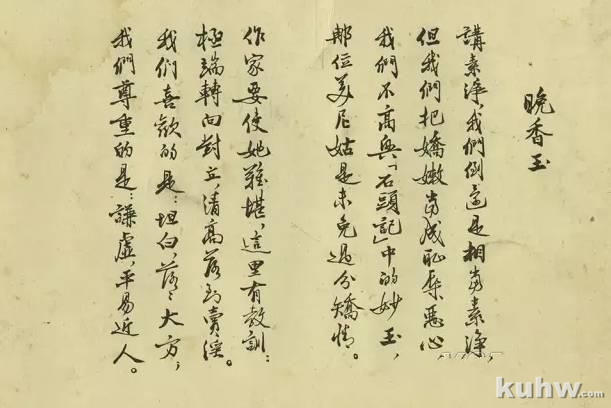 晚香玉
講素淨,我們倒還是相當素淨,
但我們把嬌嫩當成恥辱惡心,
我們不高興「石頭記」中的妙玉,
那位美尼姑是未免過分矯情。
作家要使她難堪,這里有教訓:
極端轉向對立,清高落到賣淫。
我们喜歡的是:坦白,落々大方,
我們尊重的是:謙虛,平易近人。
kuhw.com